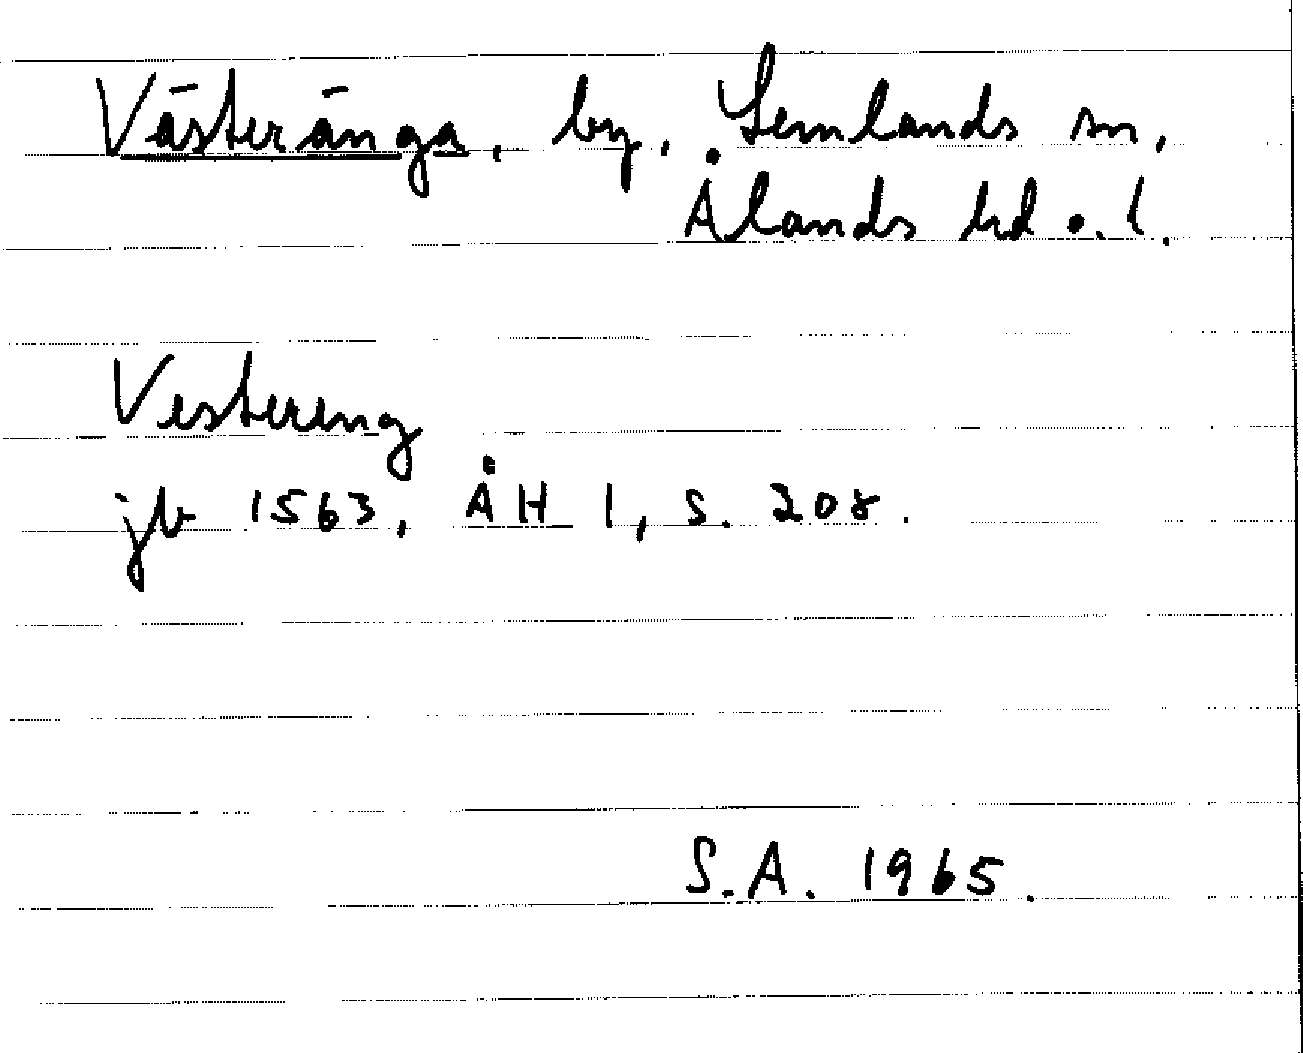 Västeränga, by, Lemlands sn,
Ålands hd o. l.
Vestereng
jb 1563, ÅH 1, s. 208.
S.A. 1965.